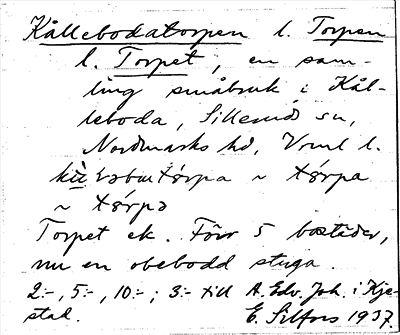 Kållebodatorpen l. Torpen
l. Torpet, en sam-
ling småbruk i Kål-
leboda, Sillerud sn,
Nordmarks hd, Vrml l.
~ tɷ́rpa
~ tɷ́rpə
Torpet ek. Förr 5 bostäder,
nu en obebodd stuga.
2:-, 5:-, 10:-; 3:- till A. Edv. Joh. i Kje-
stal. E. Silfors 1937.